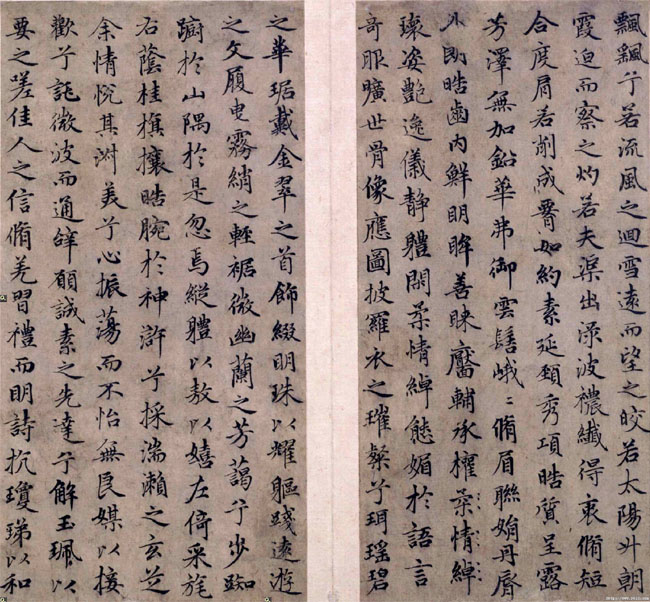 飄飄兮若流風之迴雪遠而望之皎若太陽升朝
霞迫而察之灼若夫渠出淥波穠纖得衷脩短
合度肩若削成要如約素延頸秀項皓質呈露
芳澤無加鉛華弗御雲髻峨〻脩眉聯娟丹脣
外朗皓齒內鮮明眸善睞靨輔承權柔情綽
瓌姿艷逸儀靜體閑柔情綽態媚於語言
奇服曠世骨像應圖披羅衣之璀粲兮珥瑤碧
之華琚戴金翠之首飾綴明珠以耀軀踐遠游
之文履曳霧綃之輕裾微幽蘭之芳藹兮步踟
躕於山隅於是忽焉縱體以遨以嬉左倚采旄
右蔭桂旗攘皓腕於神滸兮採湍瀨之玄芝
余情悅其淑美兮心振蕩而不怡無良媒以接
歡兮託微波而通辭願誠素之先達兮解玉珮以
要之嗟佳人之信脩羌習禮而明詩抗瓊珶以和